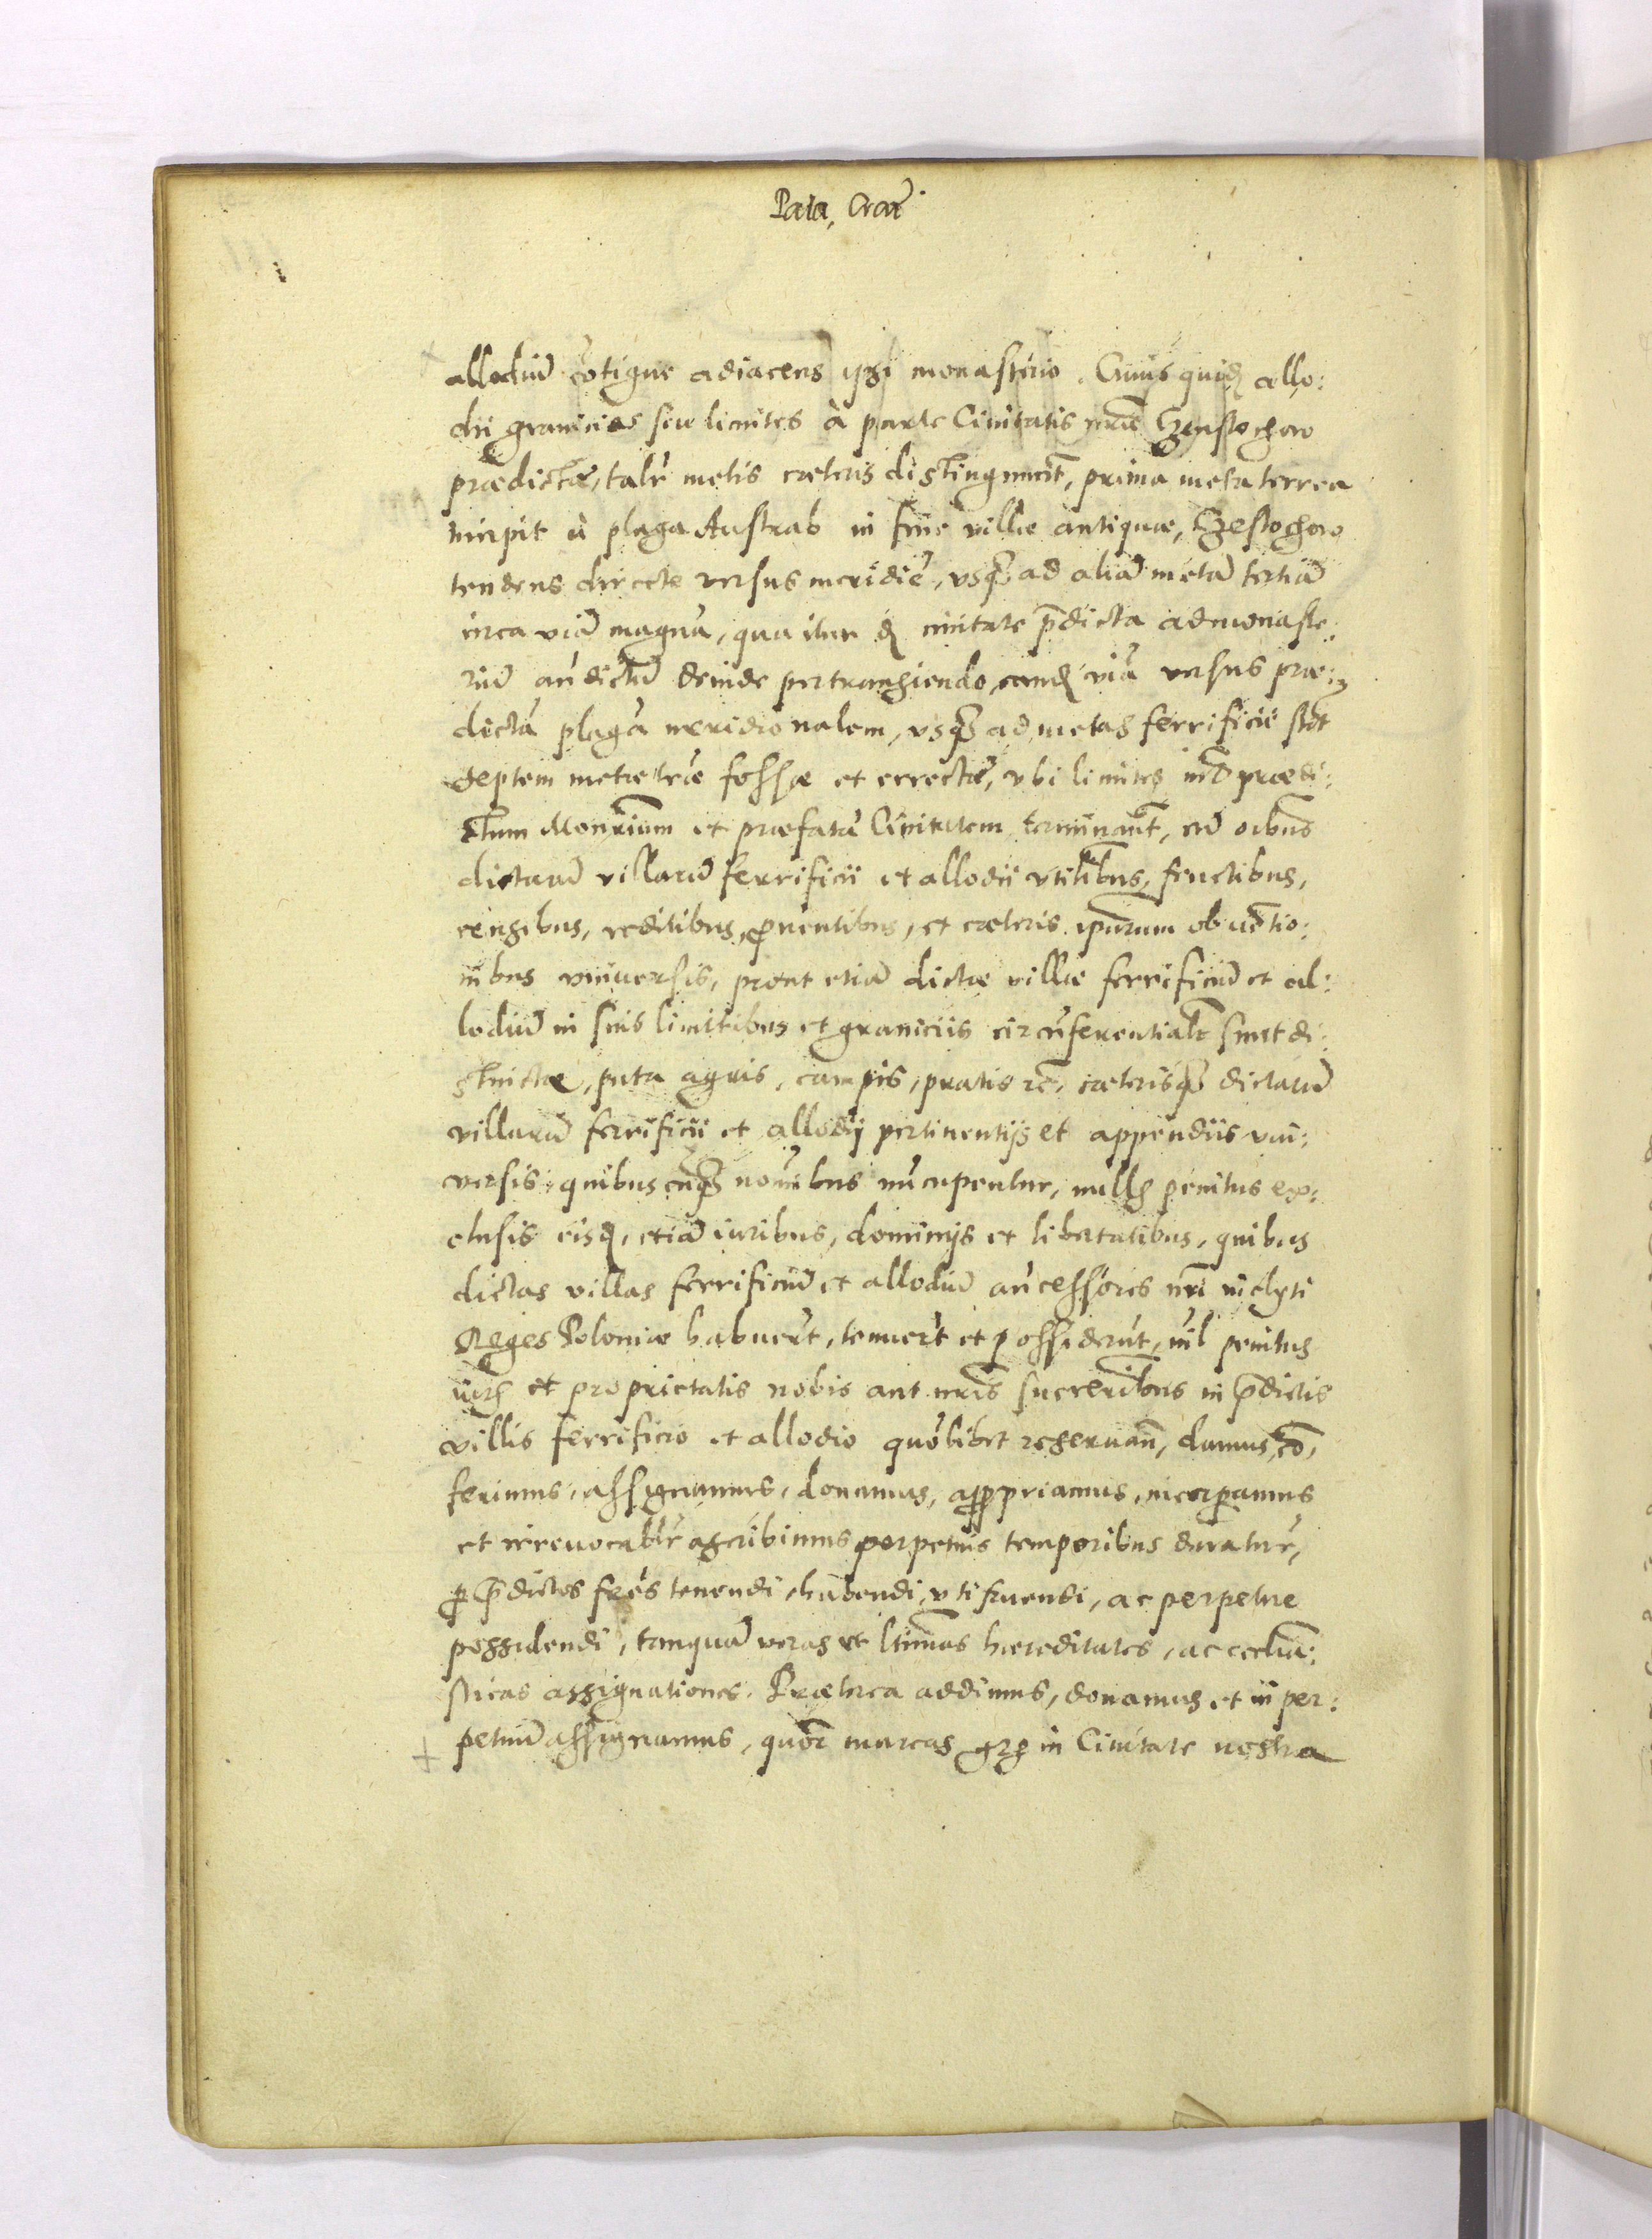 Pala, Crac̃
allodiũ cõtigue adiacens ipsi monasterio. Cuius quidẽ allo:
dii granicies seu limites à parte Ciuitatis nr̃ae Czenstochow
prædictæ, talr̃ metis cæteris distinguunt̃, prima meta terrea
incipit à plaga Australi in fine villæ antiquæ, Czestochow
tendens directe versus meridiẽ, vsq̃ ad aliã metã tertiã
circa viã magnã, qua itur de ciuitate p̃dicta ad monaste:
riũ an̄dictũ deinde pertranseundo, eandẽ viã versus præ:
dictã plagã meridionalem, vsq̃ ad metas ferrificii st̃
septem metæ træ fossæ et errectæ, vbi limites int̃ prædi:
ctum Monr̃ium et præfatã Ciuitatem terminant̃, cũ oĩbus
dictarũ villarũ ferrificii et allodii vtilit̃bus, fructibus,
censibus, reditibus, ꝓuentibus, et cæteris ipsarum obuẽtio:
nibus vniuersis, prout etiã dictæ villæ ferrificiũ et al:
lodiũ in suis limitibus et graniciis circũferentialr̃ sunt di:
stinctæ, puta agris, campis, pratis ꝛc̃, cæterisq̃ dictarũ
villarũ ferrificii et allodij pertinentijs et appendiis vni:
versis, quibuscũq̃ noĩbus nũcupentur, nullis penitus ex:
clusis eisdẽ, etiã iuribus, dominijs et libertatibus, quibus
dictas villas ferrificiũ et allodiũ an̄cessores nr̃i inclyti
Reges Poloniæ habuer̃t, tenuer̃t et possiderũt, nil penitus
iuris et proprietatis nobis aut nr̃is successoribus in p̃dictis
villis ferrificio et allodio quõlibet reseruan̄, damus, cõ,
ferimus, assignamus, donamus, apꝓpriamus, incorꝑamus
et irreuocabilr̃ ascribimus perpetuis temporibus duratur̃,
ꝑ p̃dictos fr̃es tenendi, habendi, vti fruendi, ac perpetue
possidendi, tanquã veras et ltim̃as hæreditates, ac ecclia:
sticas assignationes. Præterea addimus, donamus et in per:
petuũ assignamus, quõr marcas gr in Ciuitate nostra